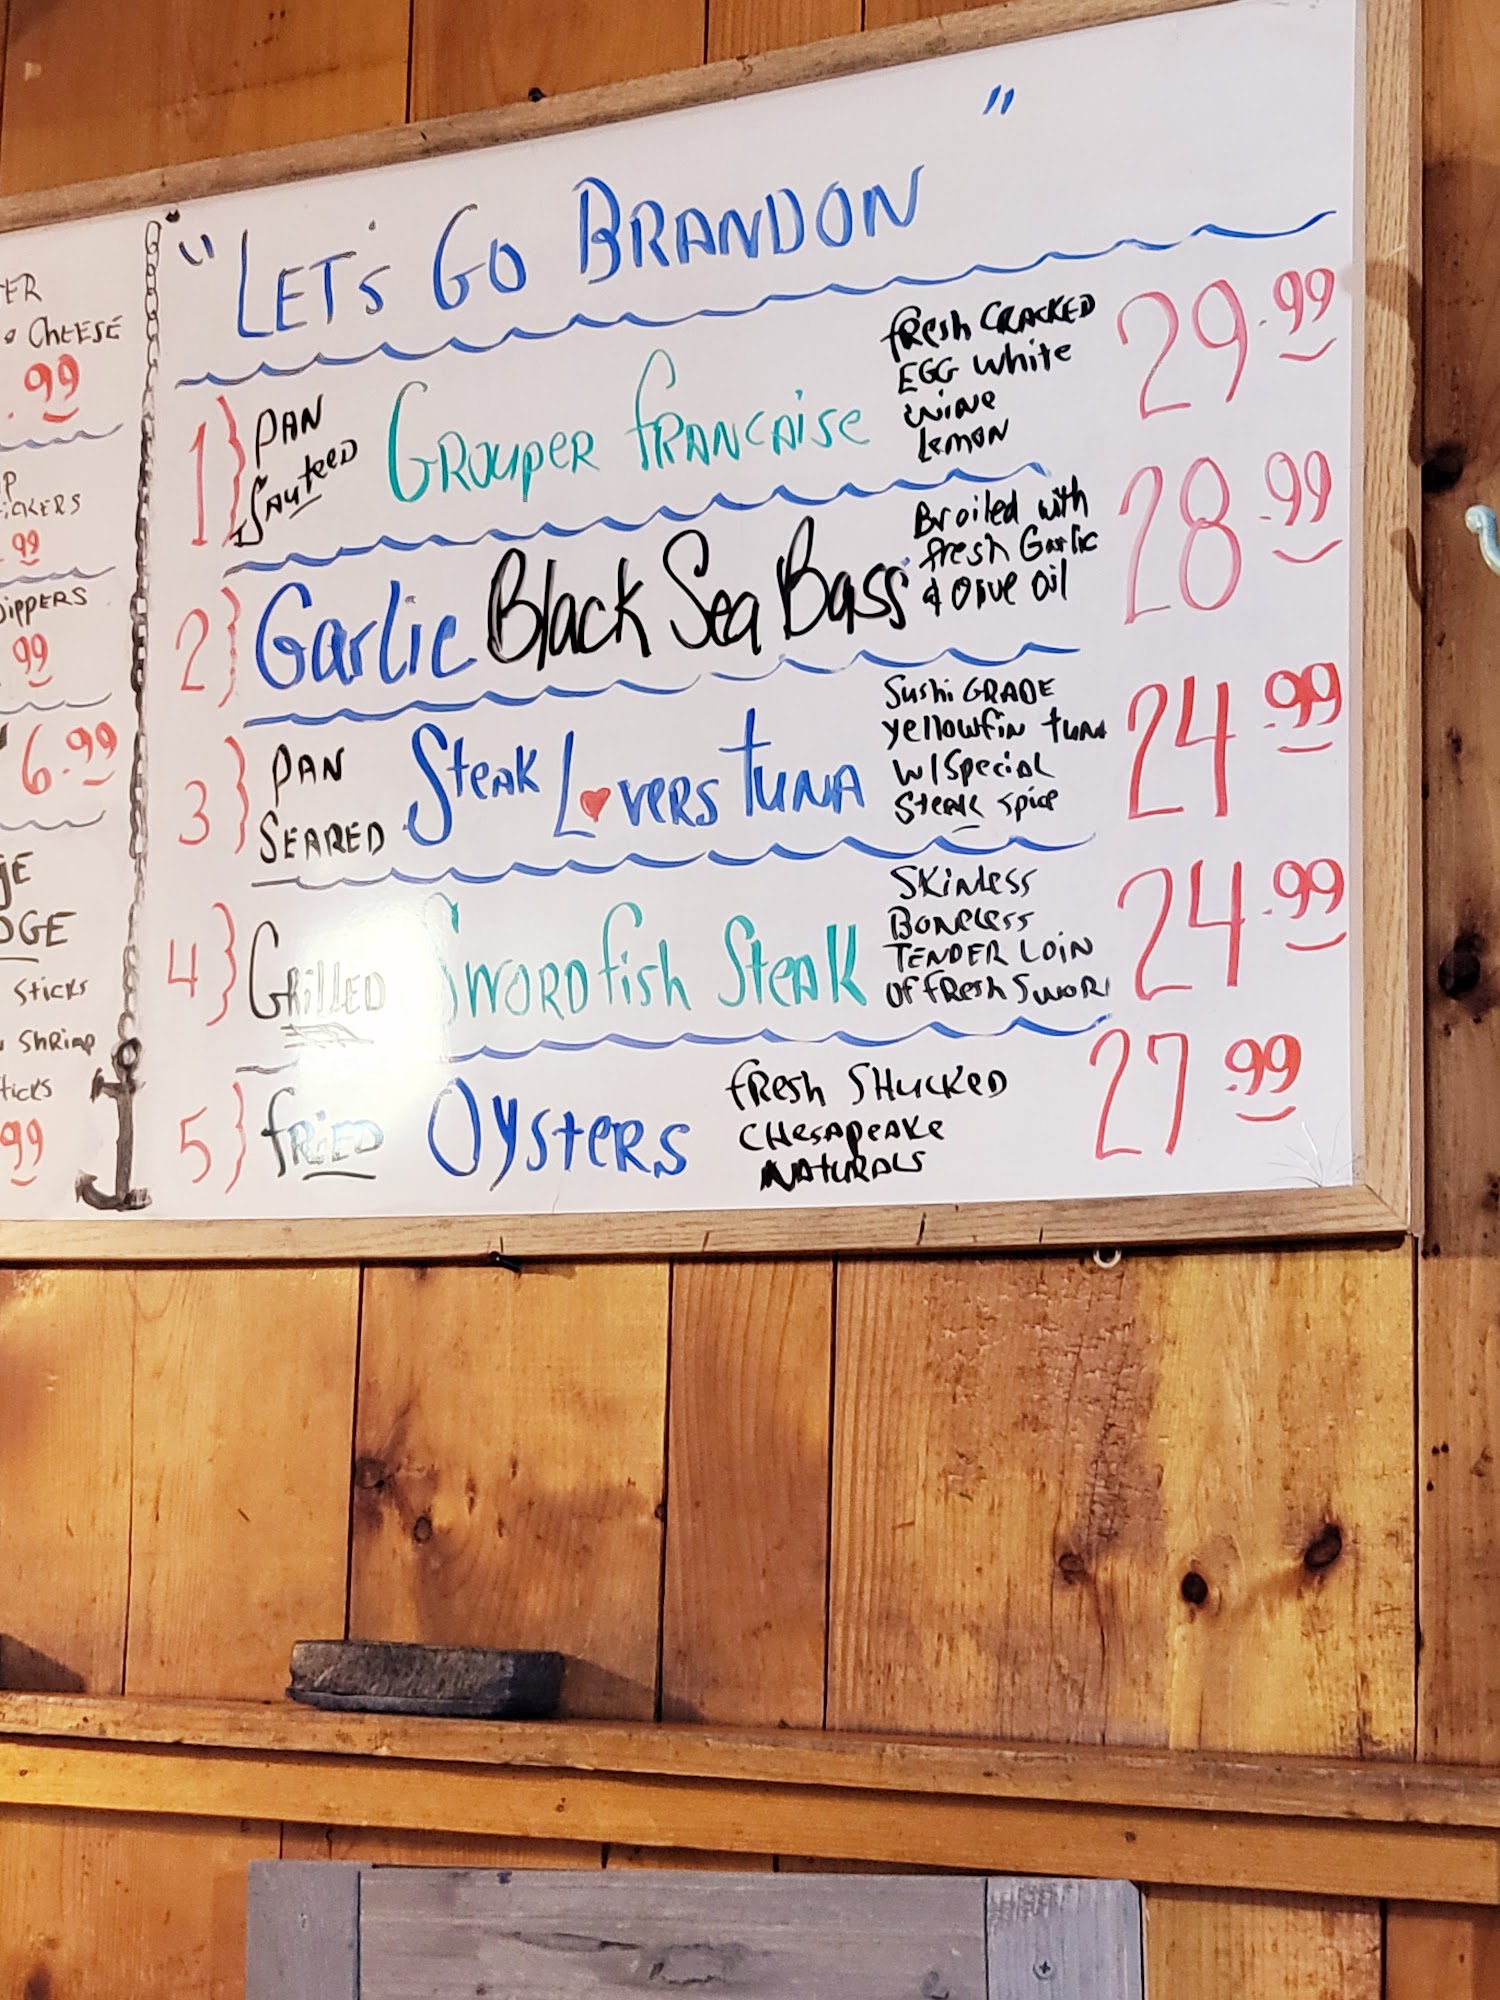 ER
CHEESE
.99
ICKERS
.99
DIPPERS
99
6.99
GE
DGE
STICKS
SHRIMP
TICKS
99
"LET'S GO BRANDON"
1} PAN SAUTEED GROUPER FRANCAISE FRESH CRACKED 29.99
EGG WHITE
WINE
LEMON
2} Garlic Black Sea Bass Broiled with 28.99
fresh Garlic
& Olive Oil
3} PAN SEARED STEAK LOVERS TUNA SUSHI GRADE 24.99
yellowfin tuna
W/SPECIAL
STEAK SPICE
4} GRILLED SWORDFISH STEAK SKINLESS 24.99
BONELESS
TENDER LOIN
OF FRESH SWORD
5} FRIED OYSTERS FRESH SHUCKED 27.99
CHESAPEAKE
NATURALS